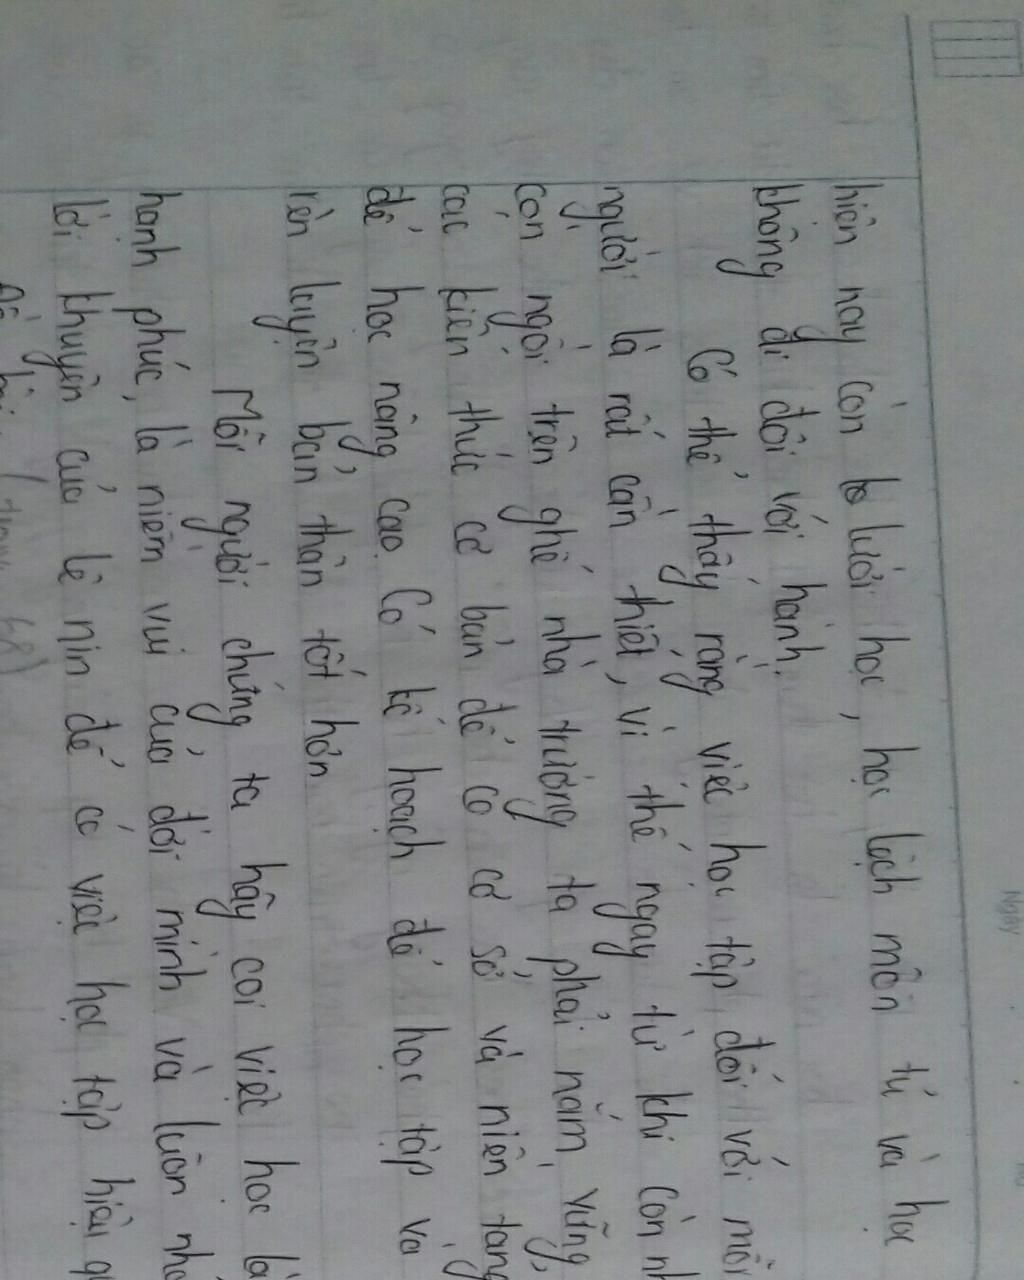 Ngày
hiện nay còn lười học, học lệch môn tủ và học
không đi đôi với hành.
Có thể thấy rằng việc học tập đối với mỗi
người là rất cần thiết, vì thế ngay từ khi còn
còn ngồi trên ghế nhà trường ta phải nắm vững
các kiến thức cơ bản để có cơ sở và niền tảng
để học nâng cao. Có kế hoạch để học tập và
rèn luyện bản thân tốt hơn.
Mỗi người chúng ta hãy coi việc học là
hạnh phúc, là niềm vui của đời mình và luôn
lời khuyên của lê nin để có việc học tập hiệu